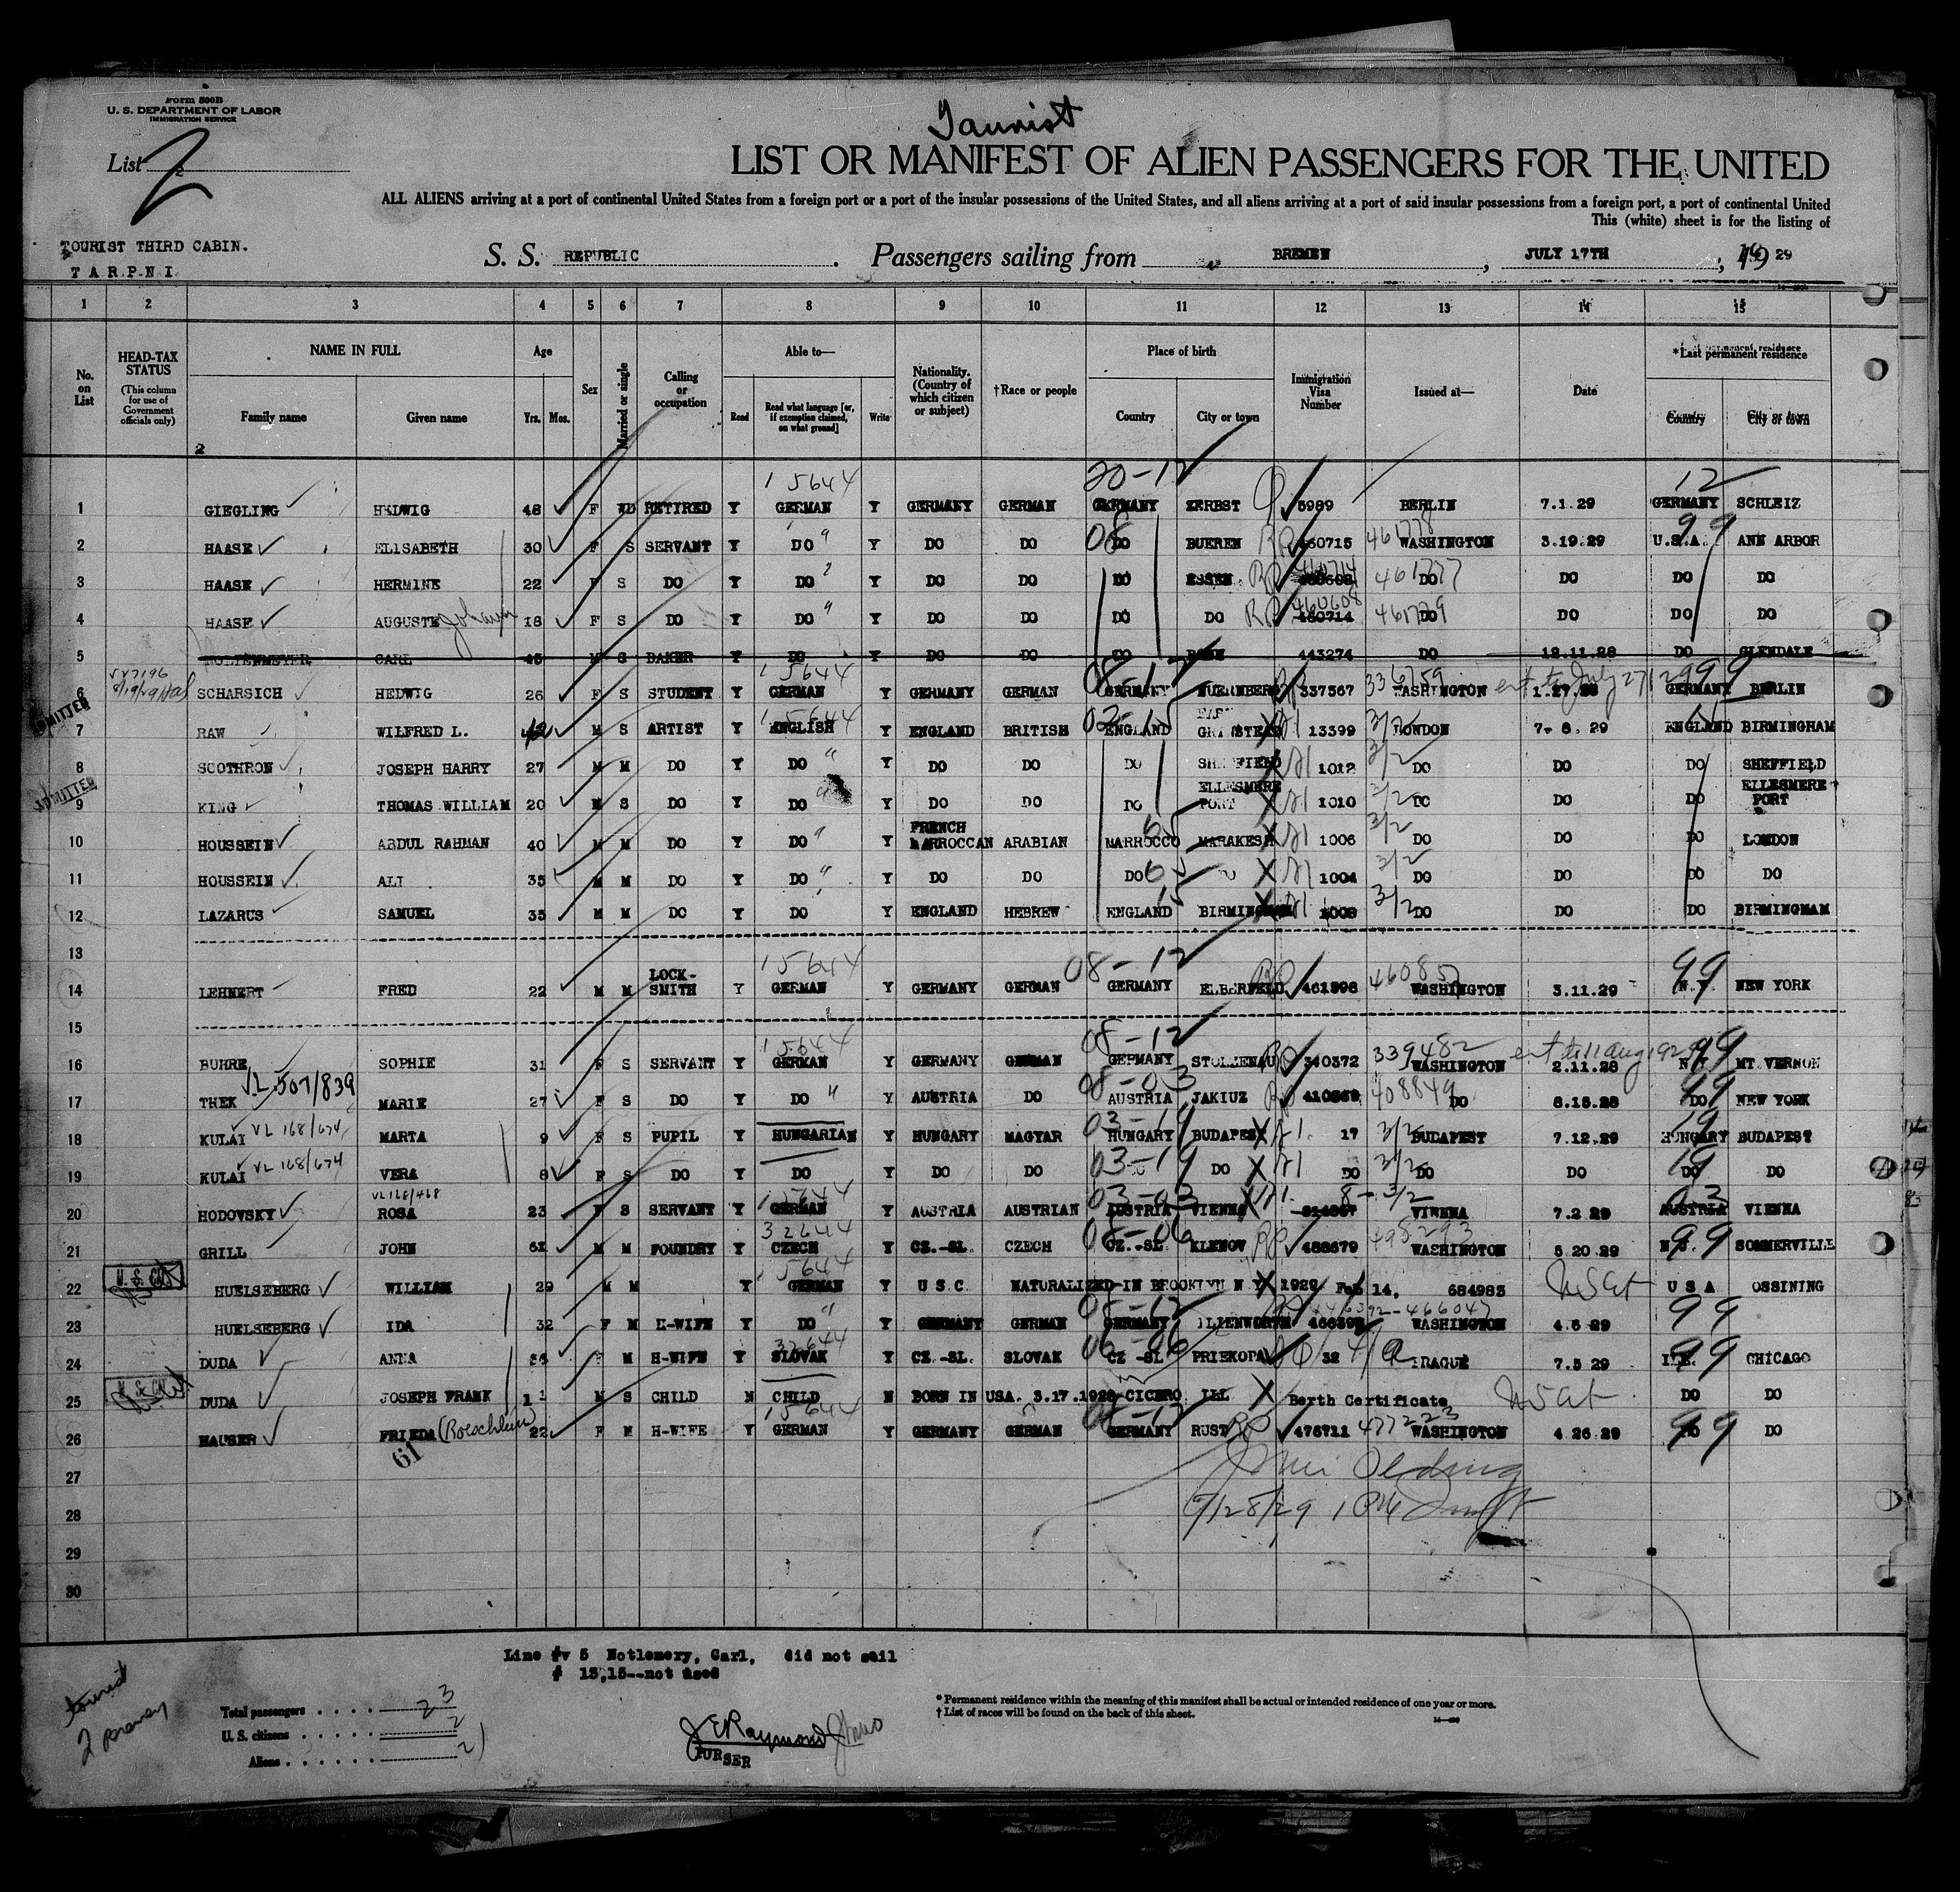 Form 500B
U. S. DEPARTMENT OF LABOR
IMMIGRATION SERVICE
List 2
2
Tourist
LIST OR MANIFEST OF ALIEN PASSENGERS FOR THE UNITED
ALL ALIENS arriving at a port of continental United States from a foreign port or a port of the insular possessions of the United States, and all aliens arriving at a port of said insular possessions from a foreign port, a port of continental United
This (white) sheet is for the listing of
TOURIST THIRD CABIN.
T A R.P.N.I.
S. S. REPUBLIC. Passengers sailing from BREMEN, JULY 17TH, 19 29
1 2 3 4 5 6 7 8 9 10 11 12 13 14 15
No. on List HEAD-TAX STATUS (This column for use of Government officials only) NAME IN FULL Family name Given name Age Yrs. Mos. Sex Married or single Calling or occupation Able to— Read Read what language [or, if exemption claimed, on what ground] Write Nationality. (Country of which citizen or subject) †Race or people Place of birth Country City or town Immigration Visa Number Issued at— Date *Last permanent residence Country City or town
2
20-12 12
1 5644
1 GIEGLING HEDWIG 48 F WD RETIRED Y GERMAN Y GERMANY GERMAN GERMANY ZERBST 5989 BERLIN 7.1.29 GERMANY SCHLEIZ
2 HAASE ELISABETH 30 F S SERVANT Y DO Y DO DO 08 DO BUEREN RP 460715 461778 WASHINGTON 3.19.29 U.S.A. 99 ANN ARBOR
3 HAASE HERMINE 22 F S DO Y DO Y DO DO DO ESSEN RP 460714 461777 DO DO DO DO
4 HAASE AUGUSTE 18 F S DO Y DO Y DO DO DO DO RP 460608 460714 461779 DO DO DO DO
5 CARL 45 M S BAKER Y DO Y DO DO DO 443274 DO 12.11.28 DO GLENDALE
6 SCHARSICH HEDWIG 26 F S STUDENT Y 15644 GERMAN Y GERMANY GERMAN 08-12 GERMANY NUERNBERG RP 337567 336759 WASHINGTON 1.27.28 ext to July 27 1929 99 GERMANY BERLIN
ADMITTED
7 RAW WILFRED L. 42 M S ARTIST Y 15644 ENGLISH Y ENGLAND BRITISH ENGLAND GRINSTEAD 13399 3/2 LONDON 7- 8. 29 ENGLAND BIRMINGHAM
8 SCOTHRON JOSEPH HARRY 27 M M DO Y DO Y DO DO DO SHEFFIELD 1012 3/2 DO DO DO SHEFFIELD
ADMITTED
9 KING THOMAS WILLIAM 20 M S DO Y DO Y DO DO DO ELLESMERE PORT 1010 3/2 DO DO DO ELLESMERE PORT
10 HOUSSEIN ABDUL RAHMAN 40 M M DO Y DO Y FRENCH MARROCCAN ARABIAN MARROCCO MARAKESH 1006 3/2 DO DO DO LONDON
11 HOUSSEIN ALI 35 M M DO Y DO Y DO DO DO DO 1004 3/2 DO DO DO DO
12 LAZARUS SAMUEL 35 M M DO Y DO Y ENGLAND HEBREW ENGLAND BIRMINGHAM 1008 3/2 DO DO DO BIRMINGHAM
13
14 LEHNERT FRED 22 M M LOCK-SMITH Y 15644 GERMAN Y GERMANY GERMAN 08-12 GERMANY ELBERFELD RP 461598 460857 WASHINGTON 3.11.29 99 N.Y. NEW YORK
15
16 BUHRE SOPHIE 31 F S SERVANT Y 15644 GERMAN Y GERMANY GERMAN 08-12 GERMANY STOLZENAU RP 340372 339482 WASHINGTON 2.11.28 ext till 11 aug 1929 99 N.Y. MT VERNON
17 THEK VL 507/839 MARIE 27 F S DO Y DO Y AUSTRIA DO 08-03 AUSTRIA JAKIUZ RP 410569 408849 DO 8.15.28 99 DO NEW YORK
18 KULAI VL 168/674 MARTA 9 F S PUPIL Y HUNGARIAN Y HUNGARY MAGYAR 03-19 HUNGARY BUDAPEST 17 3/2 BUDAPEST 7.12.29 19 HUNGARY BUDAPEST
19 KULAI VL 168/674 VERA 8 F S DO Y DO Y DO DO 03-19 DO DO 3/2 DO DO 19 DO DO
20 HODOVSKY VL 128/468 ROSA 23 F S SERVANT Y 15644 GERMAN Y AUSTRIA AUSTRIAN 03-03 AUSTRIA VIENNA 8- 3/2 VIENNA 7.2.29 03 AUSTRIA VIENNA
21 GRILL JOHN 61 M M FOUNDRY Y 32644 CZECH Y CZ.-SL. CZECH 08-06 CZ.-SL. KLENOV RP 488679 498293 WASHINGTON 5.20.29 99 SOMMERVILLE
22 U. S. CIT HUELSEBERG WILLIAM 29 M M Y 15644 GERMAN Y U S C. NATURALIZED IN BROOKLYN N Y 1929 Feb 14, 684983 U S Cit U S A OSSINING
23 HUELSEBERG IDA 32 F M H-WIFE Y DO Y GERMANY GERMAN 08-12 GERMANY 466047 WASHINGTON 4.6.29 99
24 DUDA ANNA 36 F M H-WIFE Y 32644 SLOVAK Y CZ.-SL. SLOVAK 06-06 CZ.-SL. PRIEKOPA 32 PRAGUE 7.5.29 ILL. 99 CHICAGO
25 U. S. CIT DUDA JOSEPH FRANK 11 M S CHILD N CHILD N BORN IN USA. 3.17.1928 CICERO ILL Berth Certificate U S Cit DO DO
26 HAUSER FRIEDA 22 F M H-WIFE Y 15644 GERMAN Y GERMANY GERMAN 08-12 GERMANY RUST RP 476711 477223 WASHINGTON 4.26.29 99 DO DO
61
27
28
29
30
Line # 5 Notlemery, Carl, did not sail
# 13,15--not used
Total passengers 23
U. S. citizens 2
Aliens
* Permanent residence within the meaning of this manifest shall be actual or intended residence of one year or more.
† List of races will be found on the back of this sheet.
Raymond
PURSER